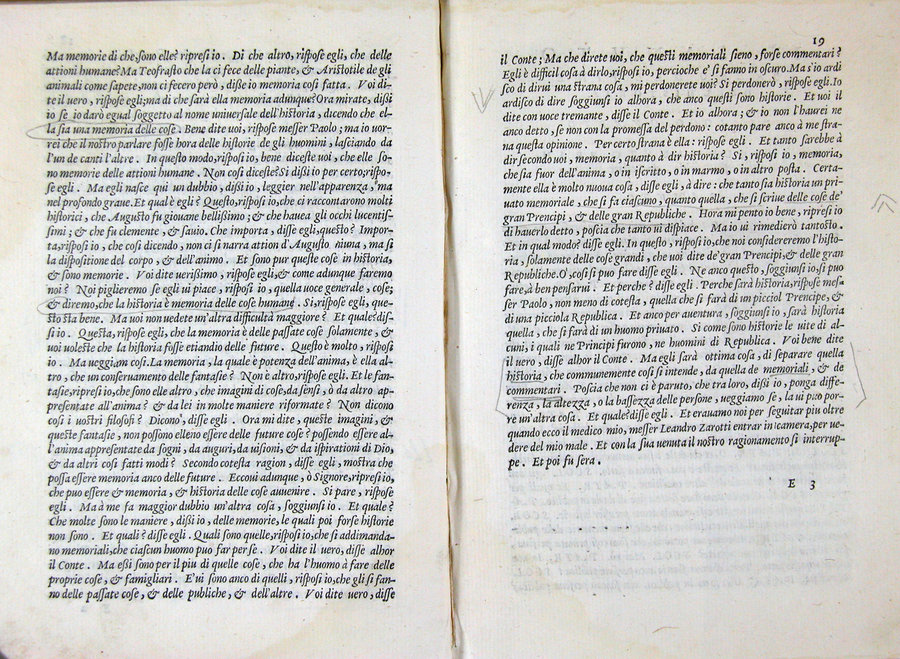 Ma memorie di che, sono elle? ripresi io. Di che altro, rispose egli, che delle
attioni humane? Ma Teofrasto che la ci fece delle piante, & Aristotile de gli
animali come sapete, non ci fecero però, disse io memoria cosi fatta. Voi di-
te il uero, rispose egli; ma di che sarà ella memoria adunque? Ora mirate, dissi
io se io darò egual soggetto al nome uniuersale dell'historia, dicendo che el-
la sia una memoria delle cose. Bene dite uoi, rispose messer Paolo; ma io uor-
rei che il nostro parlare fosse hora delle historie de gli huomini, lasciando da
l'un de canti l'altre. In questo modo, risposi io, bene diceste uoi, che elle so-
no memorie delle attioni humane. Non cosi diceste? Si dissi io per certo; rispo-
se egli. Ma egli nasce qui un dubbio, dissi io, leggier nell'apparenza, ma
nel profondo graue. Et qual è egli? Questo, risposi io, che ci raccontarono molti
historici, che Augusto fu giouane bellissimo; & che hauea gli occhi lucentis-
simi; & che fu clemente, & sauio. Che importa, disse egli, questo? Impor-
ta, risposi io, che cosi dicendo, non ci si narra attion d'Augusto niuna, ma si
la dispositione del corpo, & dell'animo. Et sono pur queste cose in historia,
& sono memorie. Voi dite uerissimo, rispose egli, & come adunque faremo
noi? Noi piglieremo se egli ui piace, risposi io, quella uoce generale, cose;
& diremo, che la historia è memoria delle cose humane. Si, rispose egli, que-
sto sta bene. Ma uoi non uedete un'altra difficultà maggiore? Et quale? dis-
si io. Questa, rispose egli, che la memoria è delle passate cose solamente, &
uoi uoleste che la historia fosse etiandio delle future. Questo è molto, risposi
io. Ma ueggiam cosi. La memoria, la quale è potenza dell'anima, è ella al-
tro, che un conseruamento delle fantasie? Non è altro, rispose egli. Et le fan-
tasie, ripresi io, che sono elle altro, che imagini di cose, da sensi, ò da altro ap-
presentate all'anima? & da lei in molte maniere riformate? Non dicono
cosi i uostri filosofi? Dicono, disse egli. Ora mi dite, queste imagini, &
queste fantasie, non possono elleno essere delle future cose? possendo essere al-
l'anima appresentate da sogni, da auguri, da uisioni, & da ispirationi di Dio,
& da altri cosi fatti modi? Secondo cotesta ragion, disse egli, mostra che
possa essere memoria anco delle future. Eccoui adunque, ò Signore, ripresi io,
che puo essere & memoria, & historia delle cose auuenire. Si pare, rispose
egli. Ma à me fa maggior dubbio un'altra cosa, soggiunsi io. Et quale?
Che molte sono le maniere, dissi io, delle memorie, le quali poi forse historie
non sono. Et quali? disse egli. Quali sono quelle, risposi io, che si addimanda-
no memoriali, che ciascun huomo puo far per se. Voi dite il uero, disse alhor
il Conte. Ma essi sono per il piu di quelle cose, che ha l'huomo à fare delle
proprie cose, & famigliari. E' ui sono anco di quelli, risposi io, che gli si fan-
no delle passate cose, & delle publiche, & dell'altre. Voi dite uero, disse
19
il Conte; Ma che direte uoi, che questi memoriali sieno, forse commentari?
Egli è difficil cosa à dirlo, risposi io, percioche e' si fanno in oscuro. Ma s'io ardi
sco di dirui una strana cosa, mi perdonerete uoi? Si perdonerò, rispose egli. Io
ardisco di dire soggiunsi io alhora, che anco questi sono historie. Et uoi il
dite con uoce tremante, disse il Conte. Et io alhora; & io non l'haurei ne
anco detto, se non con la promessa del perdono: cotanto pare anco à me stra-
na questa opinione. Per certo strana è ella: rispose egli. Et tanto sarebbe à
dir secondo uoi, memoria, quanto à dir historia? Si, risposi io, memoria,
che sia fuor dell'anima, o in iscritto, o in marmo, o in altro posta. Certa-
mente ella è molto nuoua cosa, disse egli, à dire: che tanto sia historia un pri-
uato memoriale, che si fa ciascuno, quanto quella, che si scriue delle cose de'
gran Prencipi, & delle gran Republiche. Hora mi pento io bene, ripresi io
di hauerlo detto, poscia che tanto ui dispiace. Ma io ui rimedierò tantosto.
Et in qual modo? disse egli. In questo, risposi io, che noi considereremo l'histo-
ria, solamente delle cose grandi, che uoi dite de' gran Prencipi, & delle gran
Republiche. O', cosi si puo fare disse egli. Ne anco questo, soggiunsi io, si puo
fare, à ben pensarui. Et perche? disse egli. Perche sarà historia, rispose mes-
ser Paolo, non meno di cotesta, quella che si farà di un picciol Prencipe, &
di una picciola Republica. Et anco per auentura, soggiunsi io, sarà historia
quella, che si farà di un huomo priuato. Si come sono historie le uite di al-
cuni, i quali ne Principi furono, ne huomini di Republica. Voi bene dite
il uero, disse alhor il Conte. Ma egli sarà ottima cosa, di separare quella
historia, che communemente cosi si intende, da quella de memoriali, & de
commentari. Poscia che non ci è paruto, che tra loro, dissi io, ponga diffe-
renza, la altezza, o la bassezza delle persone, ueggiamo se, la ui puo por-
re un'altra cosa. Et quale? disse egli. Et erauamo noi per seguitar piu oltre
quando ecco il medico mio, messer Leandro Zarotti entrar in camera, per ue-
dere del mio male. Et con la sua uenuta il nostro ragionamento si interrup-
pe. Et poi fu sera.
E 3